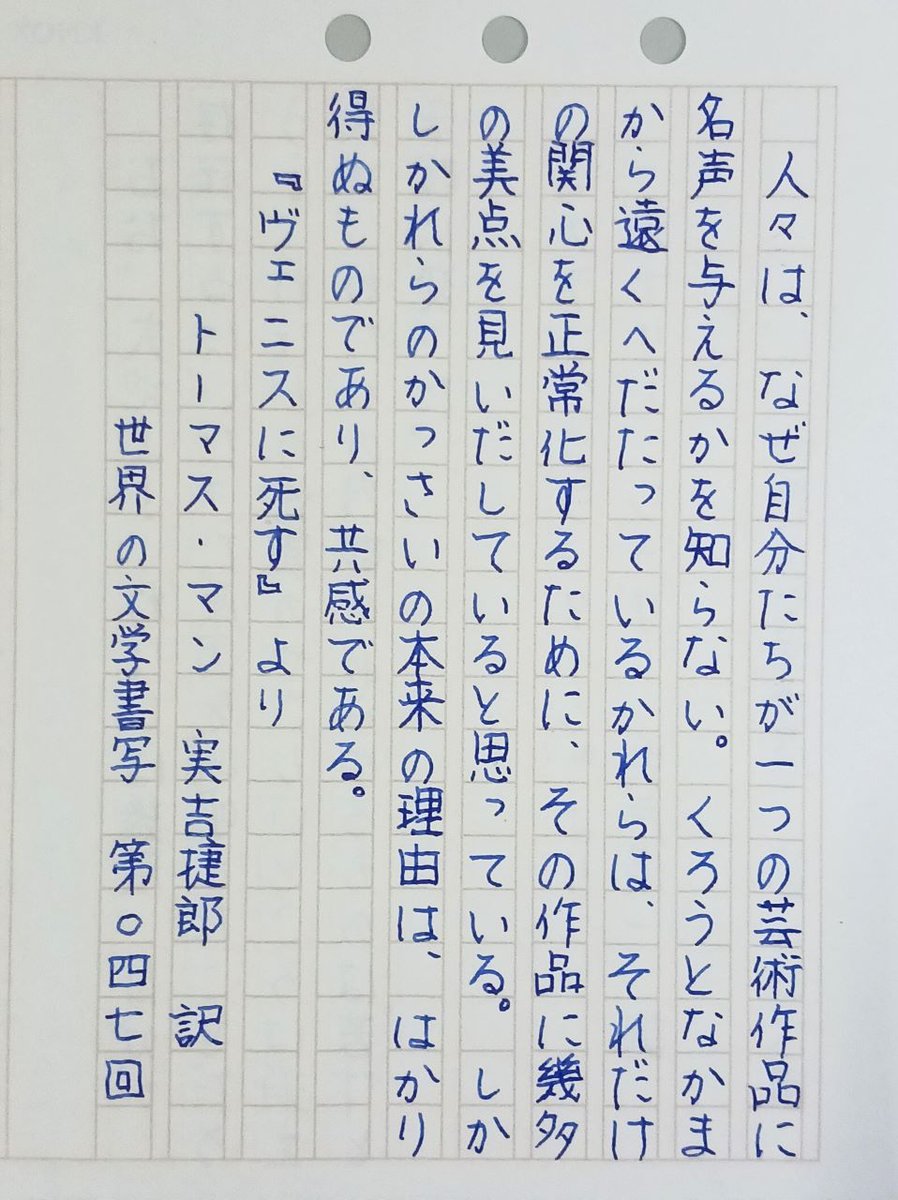 人々は、なぜ自分たちが一つの芸術作品に
名声を与えるかを知らない。くろうとなかま
から遠くへだたっているかれらは、それだけ
の関心を正常化するために、その作品に幾多
の美点を見いだしていると思っている。しか
しかれらのかっさいの本来の理由は、はかり
得ぬものであり、共感である。
『ヴェニスに死す』より
トーマス・マン　実吉捷郎　訳
世界の文学書写　第〇四七回